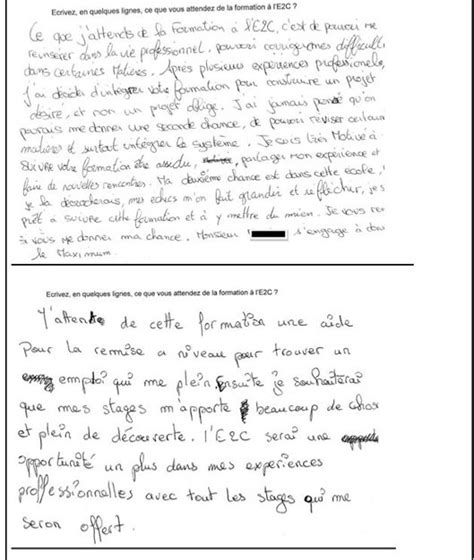 Ecrivez, en quelques lignes, ce que vous attendez de la formation à l'E2C ?
Ce que j'attends de la formation à l'E2C, c'est de pouvoir me
reinsérer dans la vie professionnel, pouvoir corriger mes difficult
dans certaines Matières. Après plusieurs expériences professionels,
J'ai décidé d'intégrer votre formation pour construire un projet
désiré, et non un projet obligé. J'ai jamais pensé qu'on
pourrais me donner une seconde chance, de pouvoir reviser certain
matières et surtout intégrer le système. Je suis très Motivé à
Suivre votre formation être assidu, partager mon expérience et
faire de nouvelles rencontres. Ma deuxième chance est dans cette ecole,
je la mes echecs m'on fait grandir et reflichir, je s
prêt a suivre cette formation et à y mettre du mien. Je vous rem
si vous me donner ma chance. Monsieur s'engage à don
le Maximum.
Ecrivez, en quelques lignes, ce que vous attendez de la formation à l'E2C ?
J'attends de cette formation une aide
Pour la remise a niveau pour trouver un
emploi qui me plein Ensuite je souhaiterai
que mes stages m'apporte beaucoup de chos
et plein de découverte. l'E2C serai une
opportunité un plus dans mes experiences
proffessionnelles avec tout les stages qui me
seron offert.